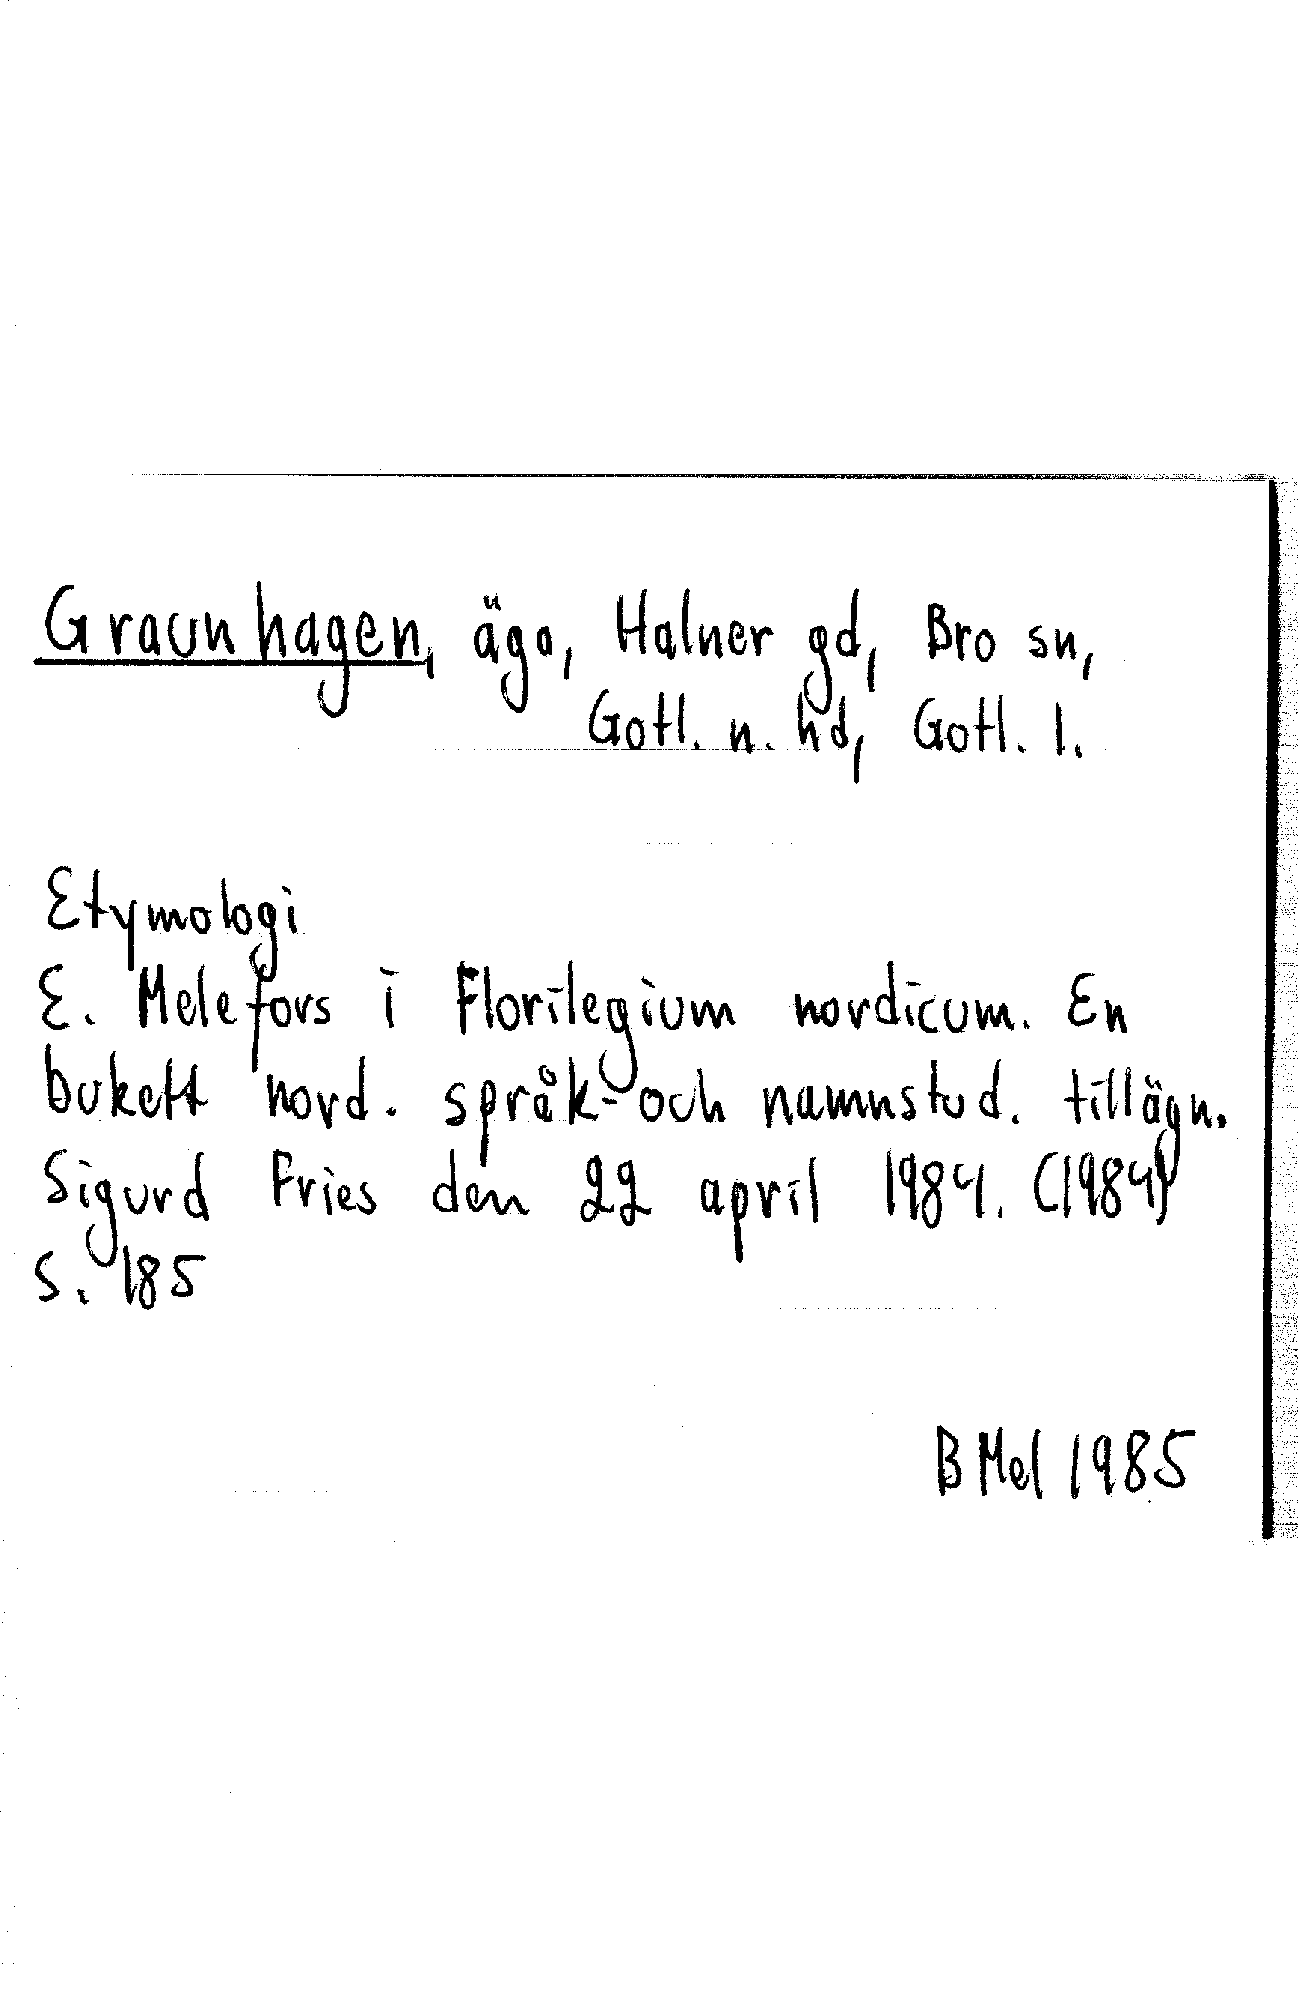 Graunhagen, äga, Halner gd, Bro sn,
Gotl. n. hd, Gotl. l.
Etymologi
E. Melefors i Florilegium nordicum. En
bukett nord. språk- och namnstud. tillägn.
Sigurd Fries den 22 april 1984. (1984)
S. 185
B Mel 1985